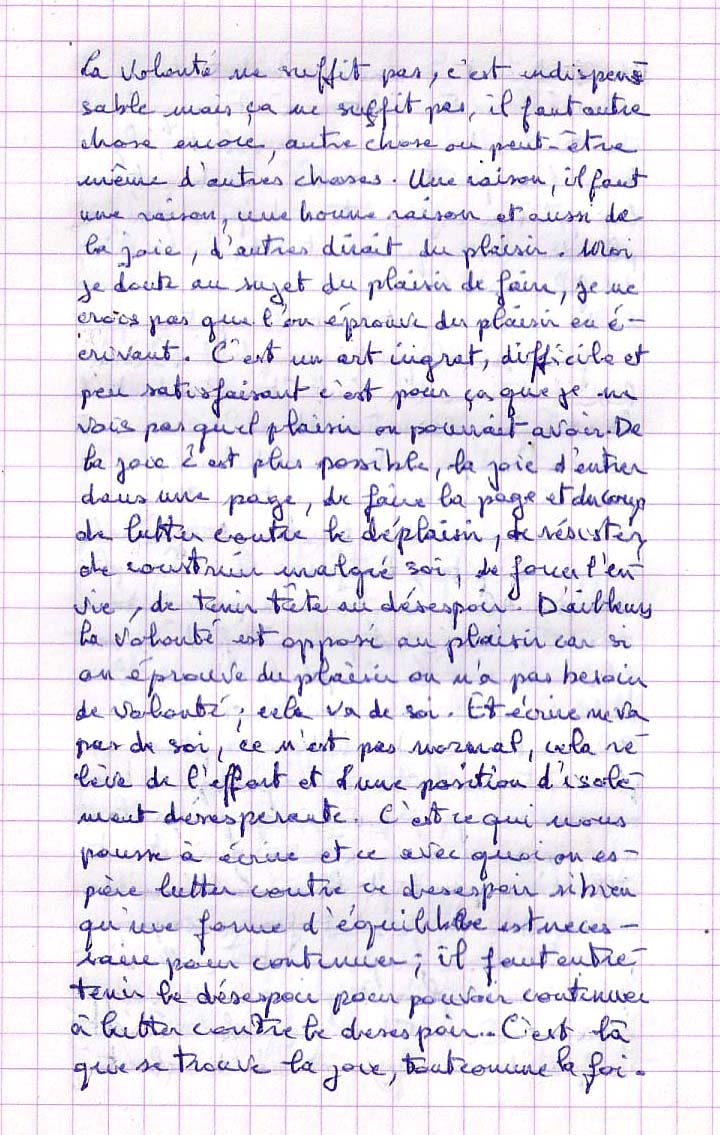 La volonté ne suffit pas, c'est indispen-
sable mais ça ne suffit pas, il faut autre
chose encore, autre chose ou peut-être
même d'autres choses. Une raison, il faut
une raison, une bonne raison et aussi de
la joie, d'autres dirait du plaisir. Moi
je doute au sujet du plaisir de faire, je ne
crois pas que l'on éprouve du plaisir en é-
crivant. C'est un art ingrat, difficile et
peu satisfaisant c'est pour ça que je ne
vois pas quel plaisir on pourrait avoir. De
la joie c'est plus possible, la joie d'entrer
dans une page, de faire la page et du coup
de lutter contre le déplaisir, de résister,
de construire malgré soi, de forcer l'en-
vie, de tenir tête au désespoir. D'ailleurs
la volonté est opposé au plaisir car si
on éprouve du plaisir on n'a pas besoin
de volonté ; cela va de soi. Et écrire ne va
pas de soi, ce n'est pas normal, cela re-
lève de l'effort et d'une position d'isole-
ment désespérante. C'est ce qui nous
pousse à écrire et ce avec quoi on es-
père lutter contre ce desespoir si bien
qu'une forme d'équilibre est neces-
saire pour continuer ; il faut entre-
tenir le désespoir pour pouvoir continuer
à lutter contre le desespoir. C'est là
que se trouve la joie, tout comme la foi.